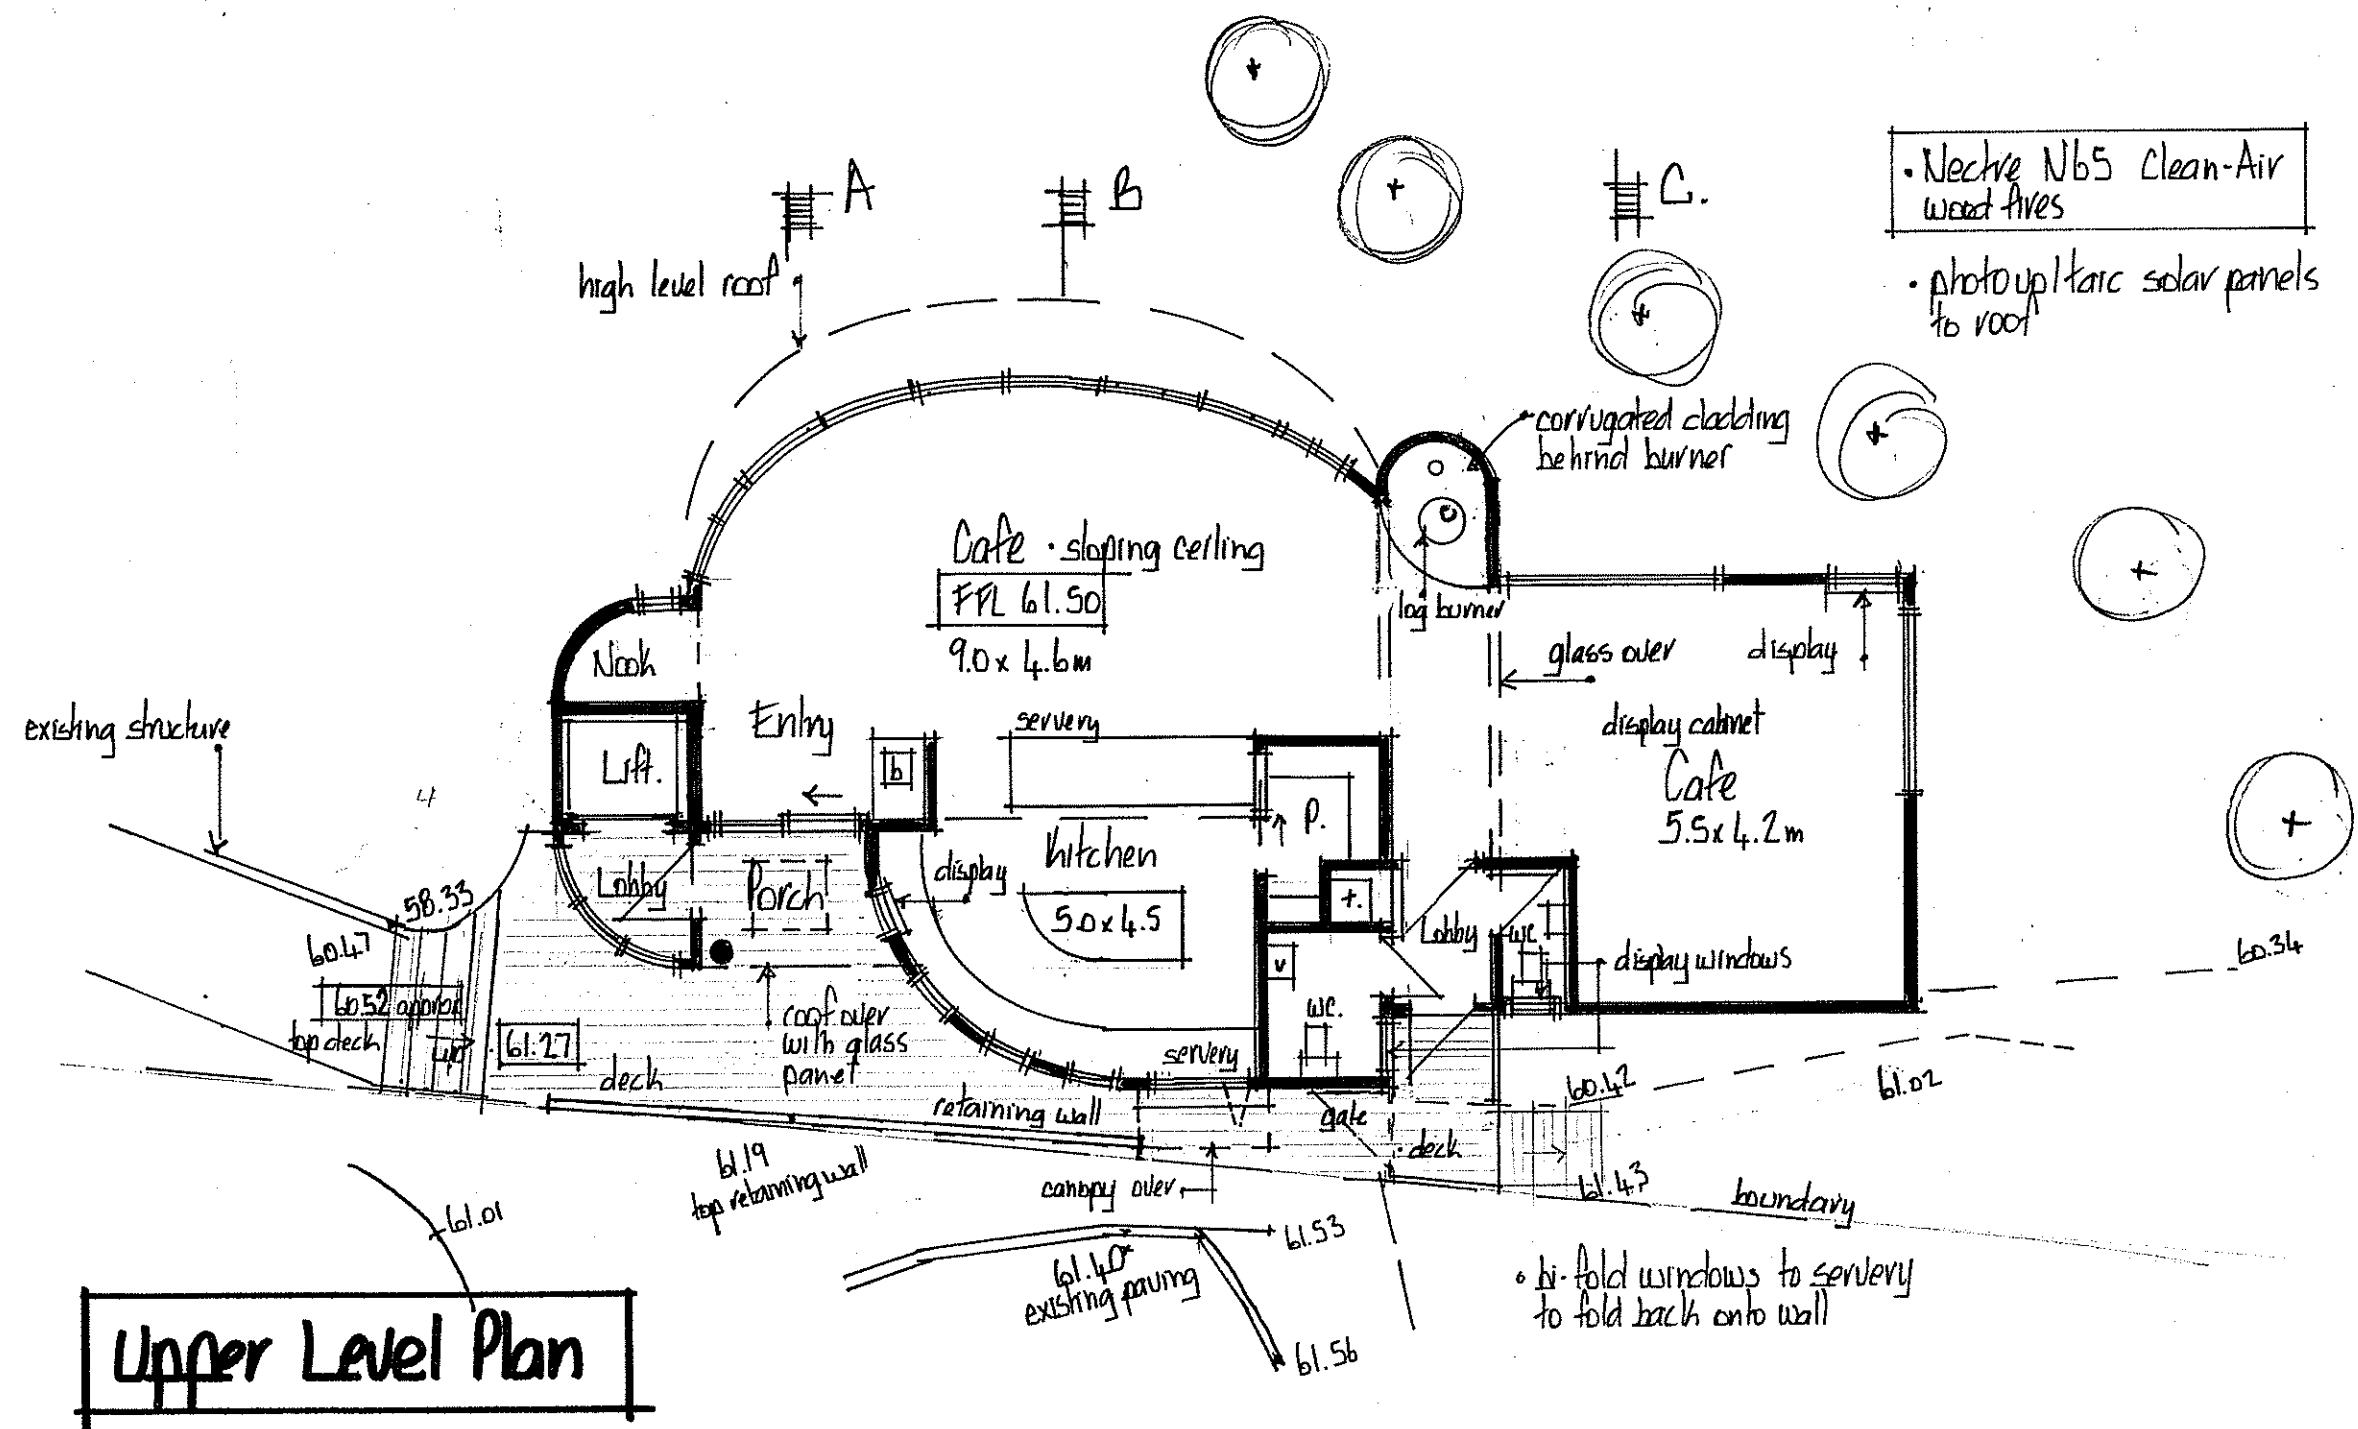 A
B
C.
• Nectre N65 Clean-Air
wood fires
• photovoltaic solar panels
to roof
high level roof
corrugated cladding
behind burner
Cafe · sloping ceiling
FFL 61.50
9.0 x 4.6m
log burner
glass over
display
display cabinet
Cafe
5.5 x 4.2m
Nook
Lift.
Entry
servery
b
existing structure
P.
Kitchen
5.0 x 4.5
display
Lobby
Porch
t.
Lobby
wc
v
wc.
display windows
58.33
60.47
60.52 approx
top deck
up
61.27
deck
roof over
with glass
panel
servery
retaining wall
gate
deck
60.34
60.42
61.02
61.43
boundary
61.19
top retaining wall
canopy over
61.01
61.53
61.40
existing paving
61.56
• bi-fold windows to servery
to fold back onto wall
Upper Level Plan